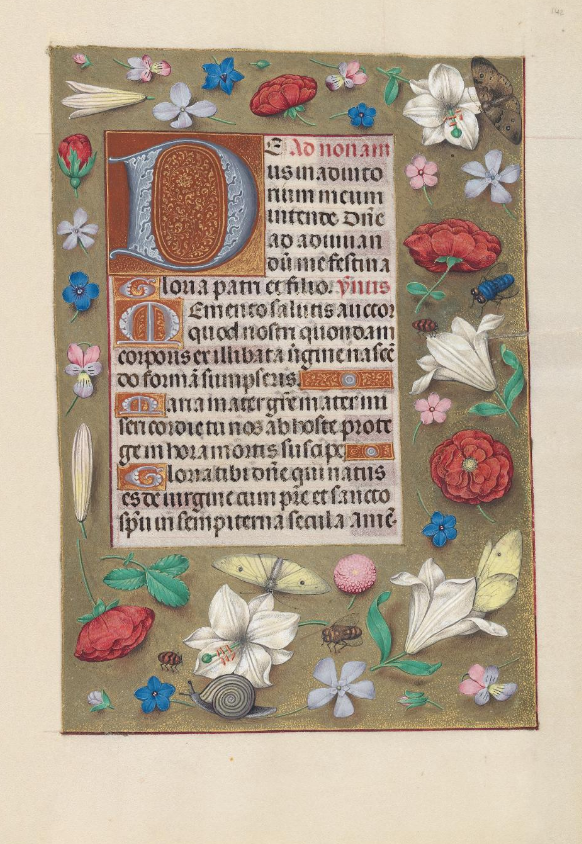 E Ad nonam
us in adiuto
rium meum
intende Dn̄e
ad adiuuan
dū me festina
Gloria patri et filio. Ymis
Memento salutis auctor
quod nostri quondam
corporis ex illibata v̄gine nascē
do formā sumpseris.
Maria mater gr̄e mater mi
sericordie tu nos ab hoste prote
ge in hora mortis suscipe
Gloria tibi dn̄e qui natus
es de uirgine cum pr̄e et sancto
sp̄u in sempiterna secula Amē.